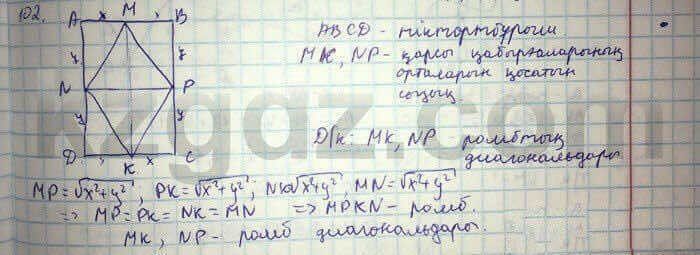 102.
A M B
x x
y y
N P
y y
D K C
x x
ABCD - тіктөртбұрыш
MK, NP - қарсы қабырғаларының
орталарын қосатын
D/к: MK, NP - ромбтың
диагональдары
MP=√x²+y², PK=√x²+y², NK=√x²+y², MN=√x²+y²
=> MP=PK=NK=MN => MPKN - ромб.
MK, NP - ромб диагональдары.
kzgaz.com